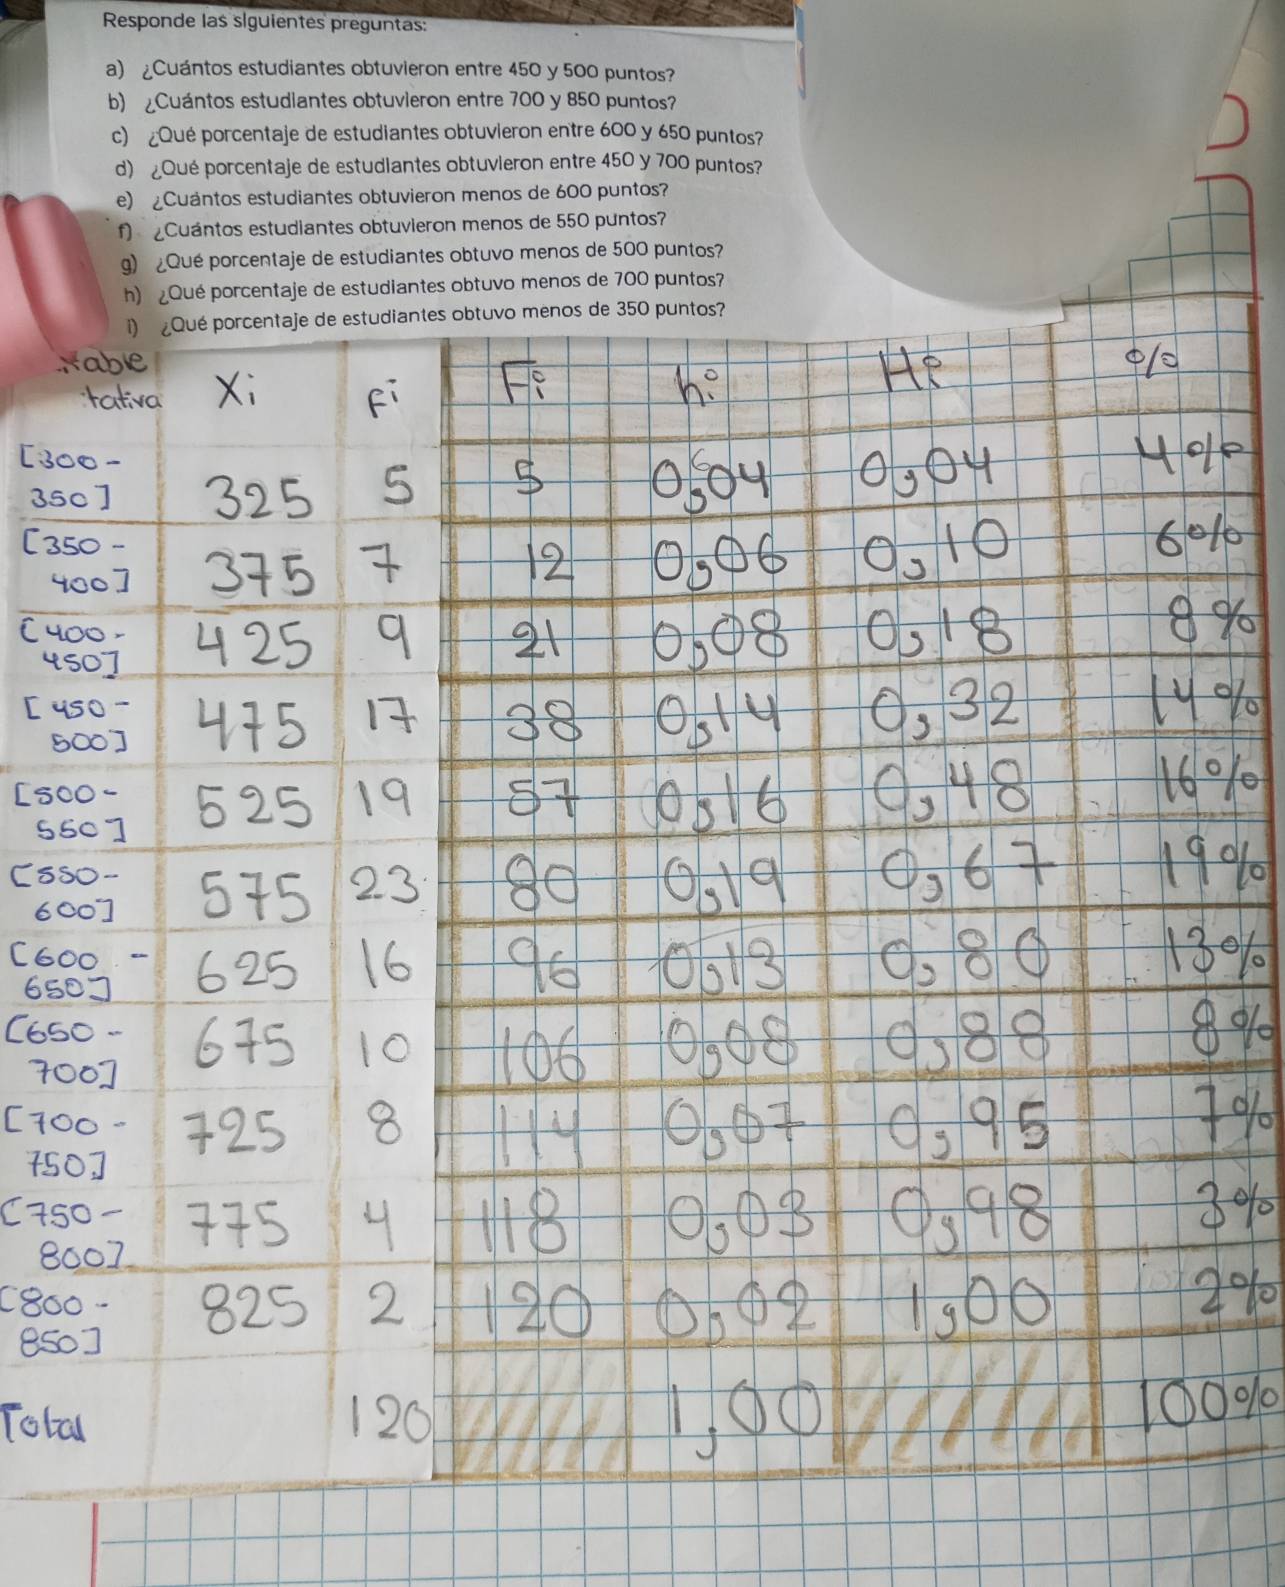 Responde las siguientes preguntas:
a) ¿Cuántos estudiantes obtuvieron entre 450 y 500 puntos?
b) ¿Cuántos estudiantes obtuvieron entre 700 y 850 puntos?
c) ¿Qué porcentaje de estudiantes obtuvieron entre 600 y 650 puntos?
d) ¿Qué porcentaje de estudiantes obtuvieron entre 450 y 700 puntos?
e) ¿Cuántos estudiantes obtuvieron menos de 600 puntos?
f) ¿Cuántos estudiantes obtuvieron menos de 550 puntos?
g) ¿Qué porcentaje de estudiantes obtuvo menos de 500 puntos?
h) ¿Qué porcentaje de estudiantes obtuvo menos de 700 puntos?
i) ¿Qué porcentaje de estudiantes obtuvo menos de 350 puntos?
iable
tativa Xi fi Fi hi Hi %
[300-
350] 325 5 5 0,04 0,04 4%
[350-
400] 375 7 12 0,06 0,10 6%
[400-
450] 425 9 21 0,08 0,18 8%
[450-
500] 475 17 38 0,14 0,32 14%
[500-
550] 525 19 57 0,16 0,48 16%
[550-
600] 575 23 80 0,19 0,67 19%
[600-
650] 625 16 96 0,13 0,80 13%
[650-
700] 675 10 106 0,08 0,88 8%
[700-
750] 725 8 114 0,07 0,95 7%
[750-
800] 775 4 118 0,03 0,98 3%
[800-
850] 825 2 120 0,02 1,00 2%
Total 120 1,00 100%